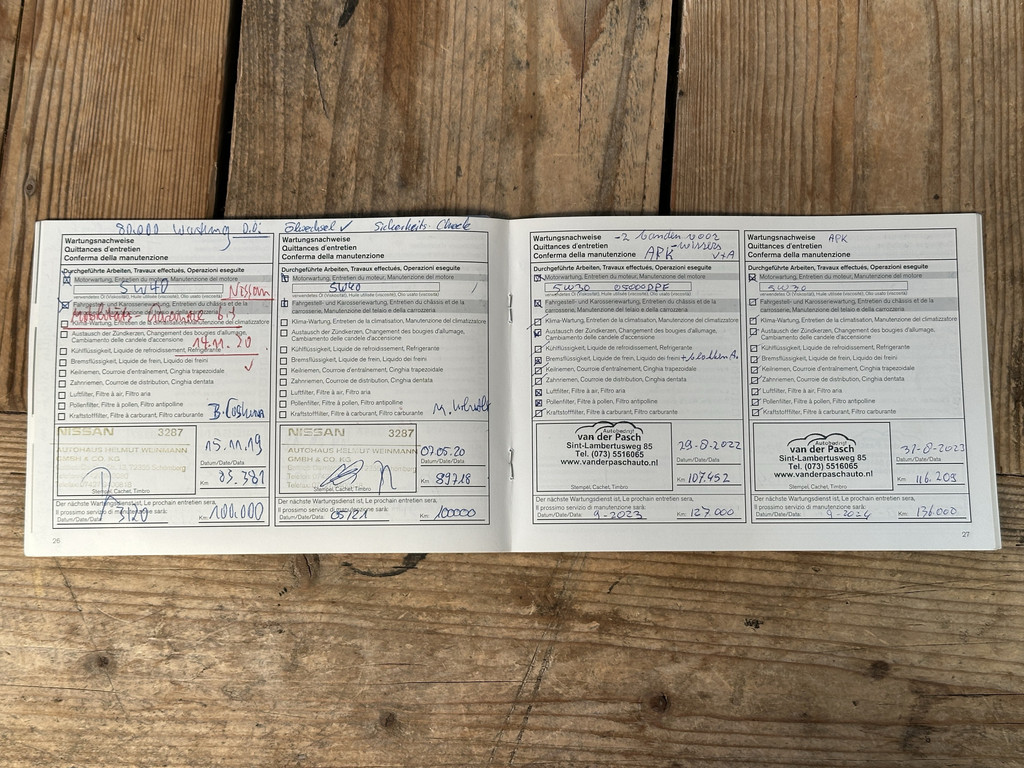 80.000 Wartung O.D.
Wartungsnachweise
Quittances d'entretien
Conferma della manutenzione
Durchgeführte Arbeiten, Travaux effectués, Operazioni eseguite
Motorwartung, Entretien du moteur, Manutenzione del motore
5W40
verwendetes Öl (Viskosität), Huile utilisée (viscosité), Olio usato (viscosità)
Nissan
Fahrgestell- und Karosseriewartung, Entretien du châssis et de la
Mobilitäts-Garantie bis
Klima-Wartung, Entretien de la climatisation, Manutenzione del climatizzatore
Austausch der Zündkerzen, Changement des bougies d'allumage,
Cambiamento delle candele d'accensione
14.11.20
Kühlflüssigkeit, Liquide de refroidissement, Refrigerante
Bremsflüssigkeit, Liquide de frein, Liquido dei freini
Keilriemen, Courroie d'entraînement, Cinghia trapezoidale
Zahnriemen, Courroie de distribution, Cinghia dentata
Luftfilter, Filtre à air, Filtro aria
Pollenfilter, Filtre à pollen, Filtro antipolline
Kraftstofffilter, Filtre à carburant, Filtro carburante
NISSAN 3287
AUTOHAUS HELMUT WEINMANN
GMBH & CO. KG
15.11.19
Datum/Date/Data
Km: 83.381
Stempel, Cachet, Timbro
Der nächste Wartungsdienst ist, Le prochain entretien sera,
Il prossimo servizio di manutenzione sarà:
Datum/Date/Data: Km: 100.000
26
Ölwechsel ✓ Sicherheits-Check
Wartungsnachweise
Quittances d'entretien
Conferma della manutenzione
Durchgeführte Arbeiten, Travaux effectués, Operazioni eseguite
Motorwartung, Entretien du moteur, Manutenzione del motore
5W40
verwendetes Öl (Viskosität), Huile utilisée (viscosité), Olio usato (viscosità)
Fahrgestell- und Karosseriewartung, Entretien du châssis et de la
carrozzeria, Manutenzione del telaio e della carrozzeria
Klima-Wartung, Entretien de la climatisation, Manutenzione del climatizzatore
Austausch der Zündkerzen, Changement des bougies d'allumage,
Cambiamento delle candele d'accensione
Kühlflüssigkeit, Liquide de refroidissement, Refrigerante
Bremsflüssigkeit, Liquide de frein, Liquido dei freini
Keilriemen, Courroie d'entraînement, Cinghia trapezoidale
Zahnriemen, Courroie de distribution, Cinghia dentata
Luftfilter, Filtre à air, Filtro aria
Pollenfilter, Filtre à pollen, Filtro antipolline
Kraftstofffilter, Filtre à carburant, Filtro carburante
NISSAN 3287
AUTOHAUS HELMUT WEINMANN
GMBH & CO. KG
07.05.20
Datum/Date/Data
Km: 89718
Stempel, Cachet, Timbro
Der nächste Wartungsdienst ist, Le prochain entretien sera,
Il prossimo servizio di manutenzione sarà:
Datum/Date/Data: 05/21 Km: 100000
Wartungsnachweise
Quittances d'entretien
Conferma della manutenzione
-2 banden voor
-wissers
APK V+A
Durchgeführte Arbeiten, Travaux effectués, Operazioni eseguite
Motorwartung, Entretien du moteur, Manutenzione del motore
5W30
verwendetes Öl (Viskosität), Huile utilisée (viscosité), Olio usato (viscosità)
Fahrgestell- und Karosseriewartung, Entretien du châssis et de la
Klima-Wartung, Entretien de la climatisation, Manutenzione del climatizzatore
Austausch der Zündkerzen, Changement des bougies d'allumage,
Cambiamento delle candele d'accensione
Kühlflüssigkeit, Liquide de refroidissement, Refrigerante
Bremsflüssigkeit, Liquide de frein, Liquido dei freini + blokken A.
Keilriemen, Courroie d'entraînement, Cinghia trapezoidale
Zahnriemen, Courroie de distribution, Cinghia dentata
Luftfilter, Filtre à air, Filtro aria
Pollenfilter, Filtre à pollen, Filtro antipolline
Kraftstofffilter, Filtre à carburant, Filtro carburante
Autobedrijf
van der Pasch
Sint-Lambertusweg 85
Tel. (073) 5516065
www.vanderpaschauto.nl
29-8-2022
Datum/Date/Data
Km: 107.452
Stempel, Cachet, Timbro
Der nächste Wartungsdienst ist, Le prochain entretien sera,
Il prossimo servizio di manutenzione sarà:
Datum/Date/Data: 9-2023 Km: 127.000
Wartungsnachweise APK
Quittances d'entretien
Conferma della manutenzione
Durchgeführte Arbeiten, Travaux effectués, Operazioni eseguite
Motorwartung, Entretien du moteur, Manutenzione del motore
5W30
verwendetes Öl (Viskosität), Huile utilisée (viscosité), Olio usato (viscosità)
Fahrgestell- und Karosseriewartung, Entretien du châssis et de la
Klima-Wartung, Entretien de la climatisation, Manutenzione del climatizzatore
Austausch der Zündkerzen, Changement des bougies d'allumage,
Cambiamento delle candele d'accensione
Kühlflüssigkeit, Liquide de refroidissement, Refrigerante
Bremsflüssigkeit, Liquide de frein, Liquido dei freini
Keilriemen, Courroie d'entraînement, Cinghia trapezoidale
Zahnriemen, Courroie de distribution, Cinghia dentata
Luftfilter, Filtre à air, Filtro aria
Pollenfilter, Filtre à pollen, Filtro antipolline
Kraftstofffilter, Filtre à carburant, Filtro carburante
Autobedrijf
van der Pasch
Sint-Lambertusweg 85
Tel. (073) 5516065
www.vanderpaschauto.nl
31-8-2023
Datum/Date/Data
Km: 116.209
Stempel, Cachet, Timbro
Der nächste Wartungsdienst ist, Le prochain entretien sera,
Il prossimo servizio di manutenzione sarà:
Datum/Date/Data: 9-2024 Km: 136.000
27